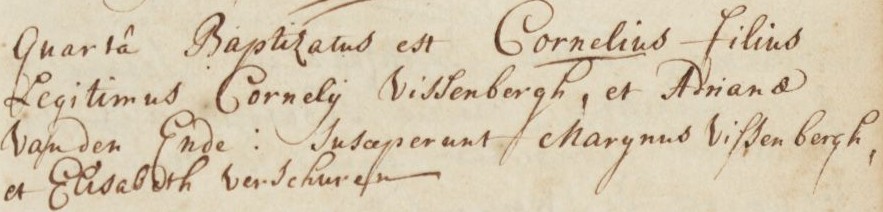 Quartâ Baptizatus est Cornelius filius
Legitimus Cornelij Vissenbergh, et Adrianæ
Van den Ende : Susceperunt Marynus Vissenbergh,
et Elisabeth Verschuren